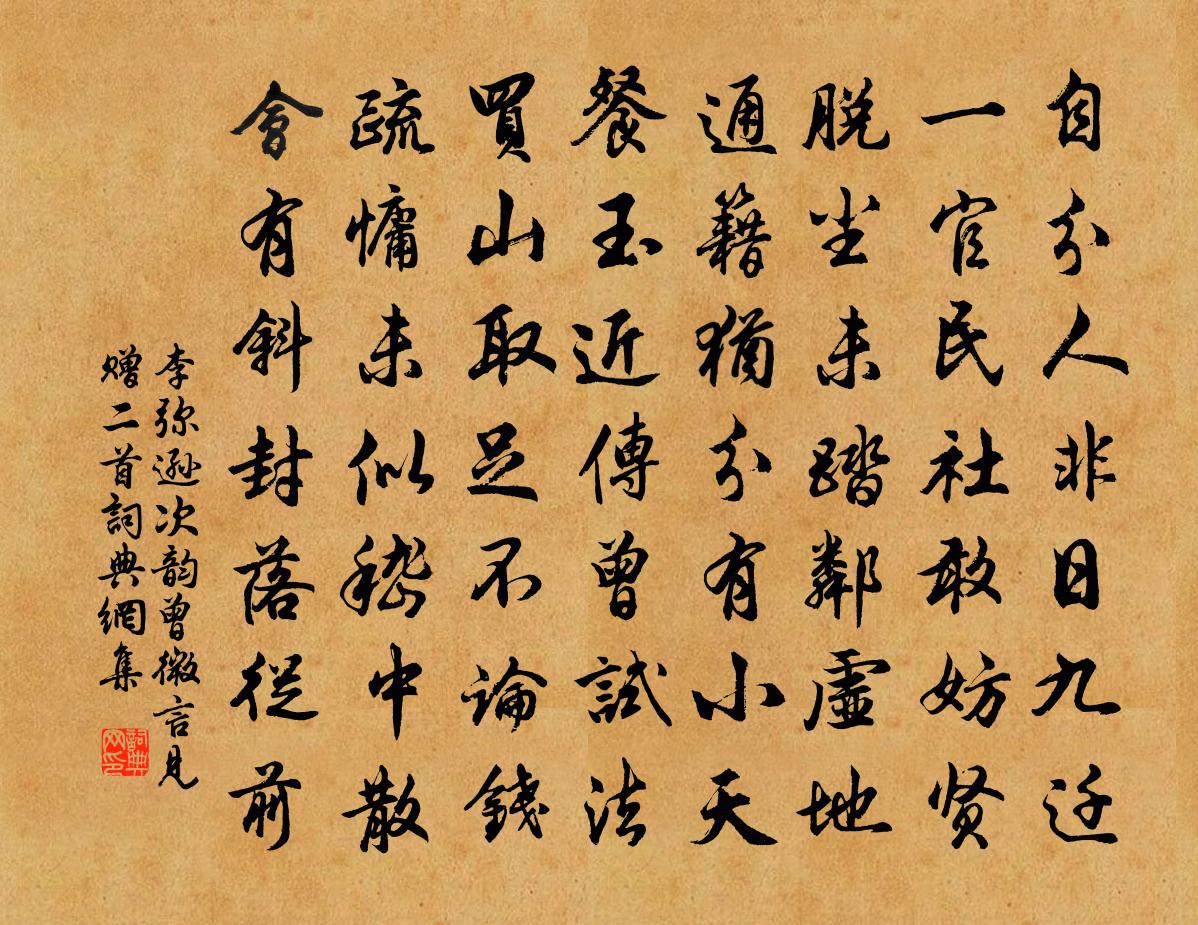 自分人非日九迁
一官民社敢妨贤
脱尘未踏鄰虚地
通籍猶分有小天
餐玉近傳曾試法
買山取足不論錢
疏慵未似嵇中散
會有斜封落從前
李弥遜次韵曾微言見
赠二首詞典網集
詞典网印